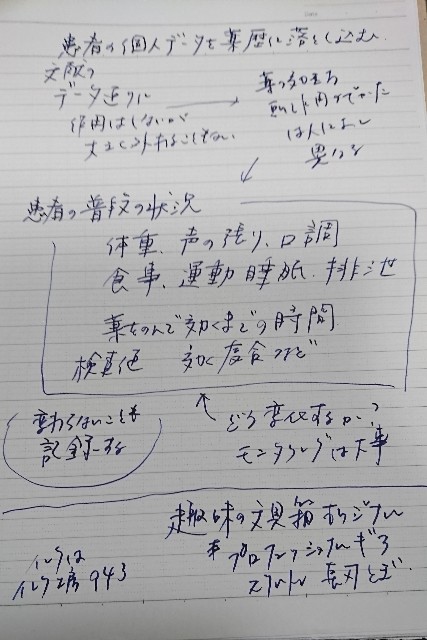 患者の個人データを薬歴に落とし込む
文献の
データ通りに
作用はしないが
大きく外れることもない
薬の効き方
動く内でやった
は人によし
異なる
患者の普段の状況
体重、声の張り、口調
食事、運動、睡眠、排泄
薬をのんで効くまでの時間
検査値 効く度合など
変わらないことも
記録する
どう変化するか?
モニタリングは大事
趣味の文具箱オリジナル
プロフェッショナルギア
スケルトン 長刀とぎ
インクは
インク工房943